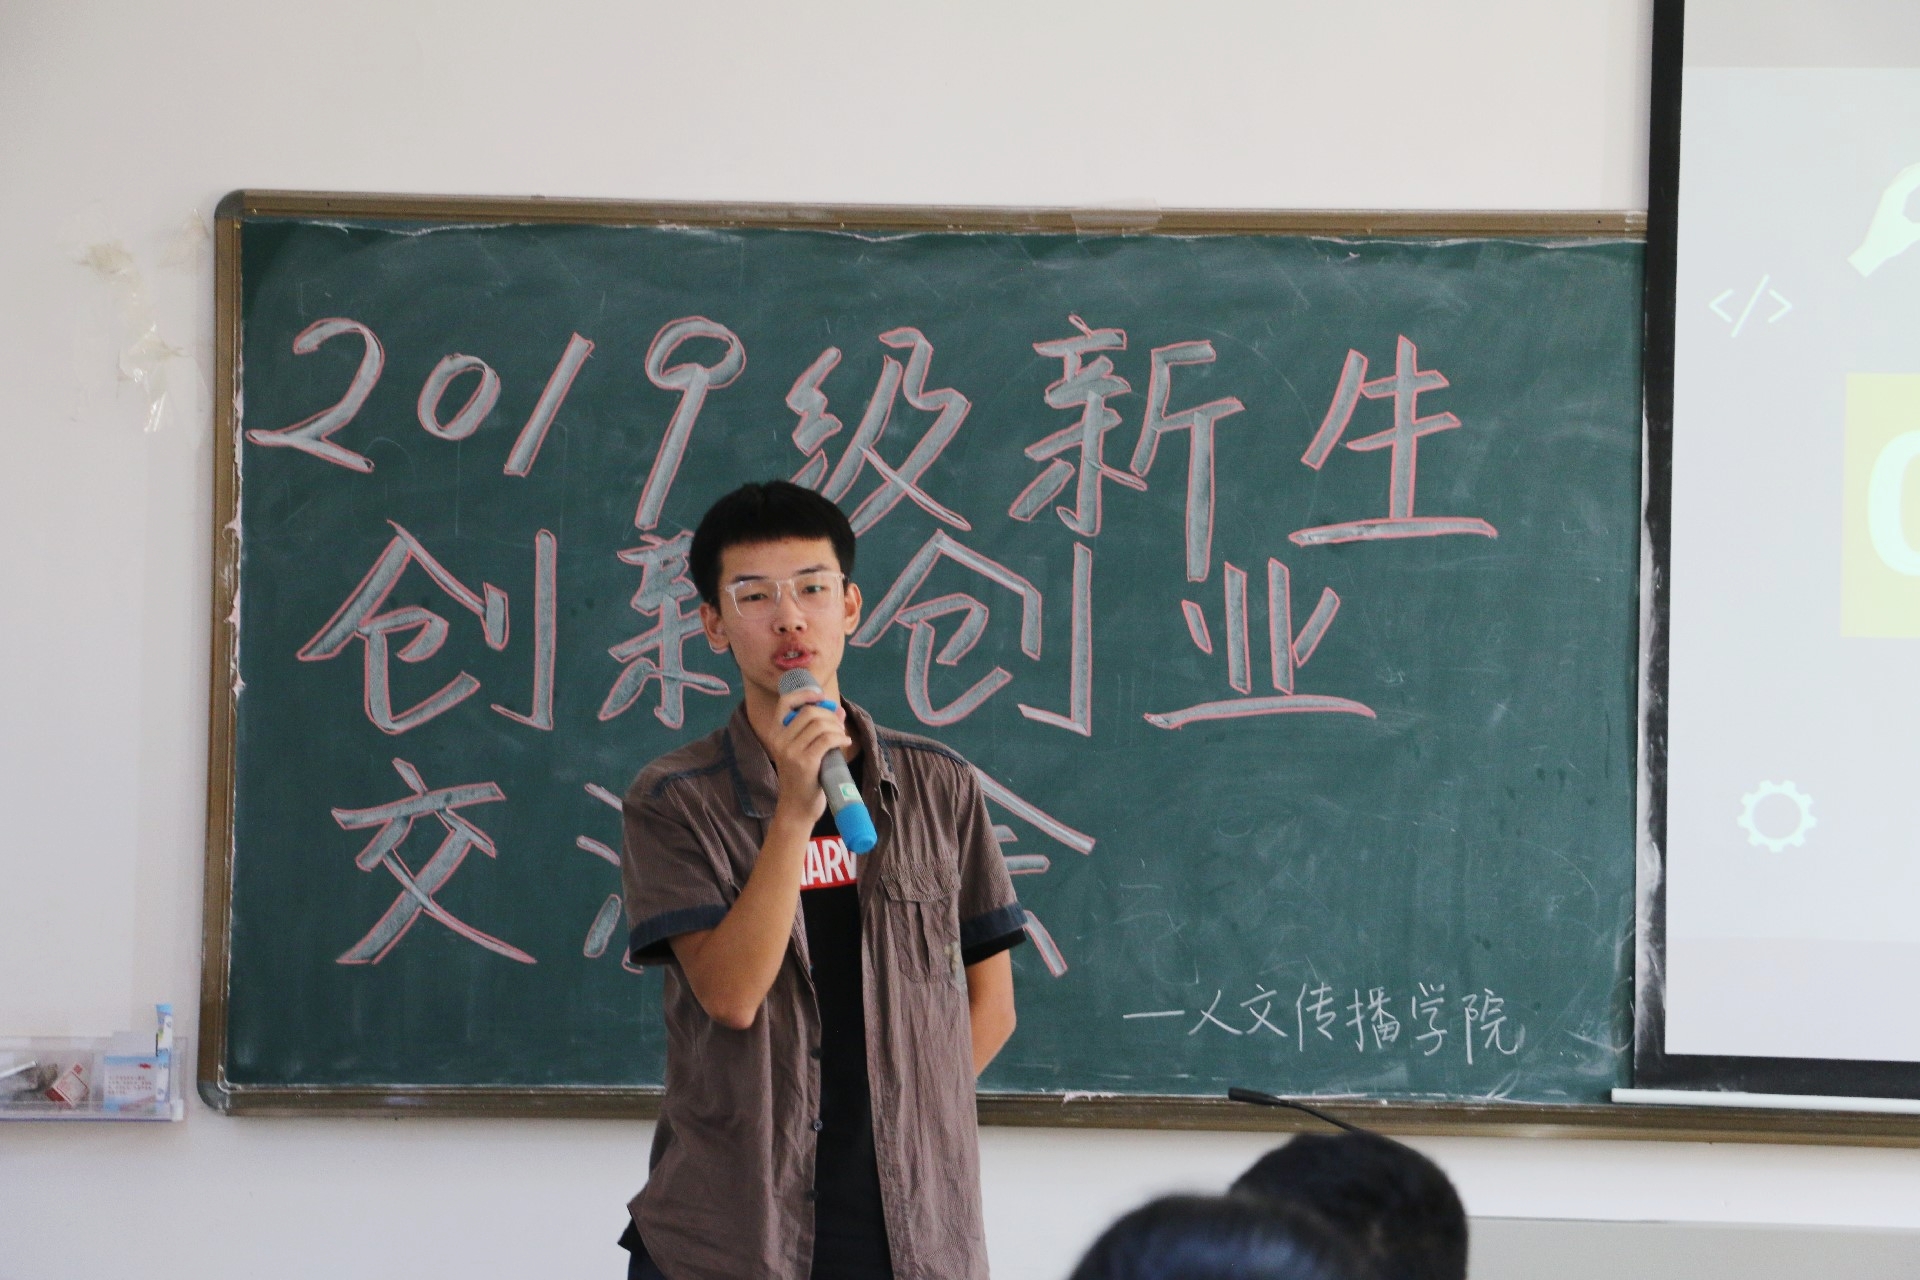 2019级新生
创新创业
交流会
一人文传播学院
</>
MARV